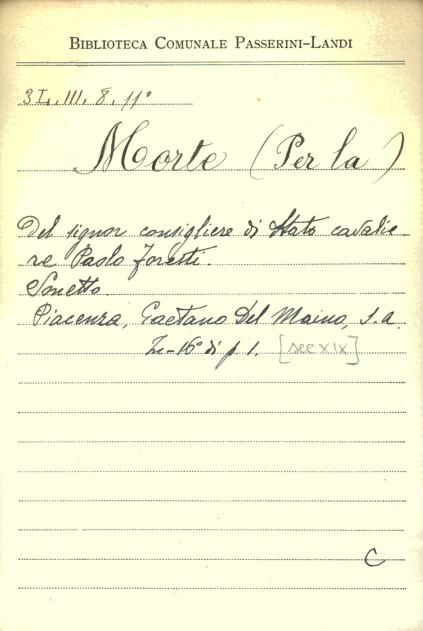 BIBLIOTECA COMUNALE PASSERINI-LANDI
3 I., III, 8, 11°
Morte (Per la)
Del signor consigliere di Stato cavalie
re Paolo Foresti.
Sonetto
Piacenza, Gaetano Del Maino, s. a.
In-16° di p. 1. [sec XIX]
C